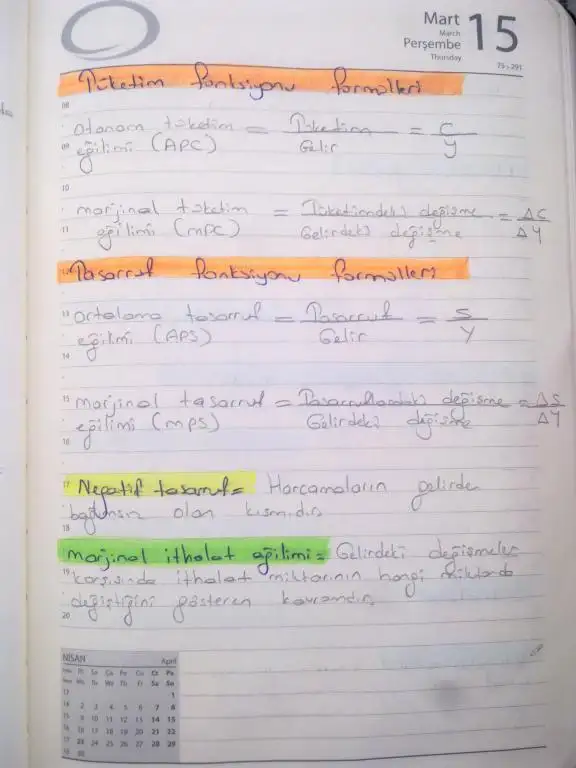 Mart
March
Perşembe
Thursday
15
75-291
Tüketim fonksiyonu formülleri
08
otonom tüketim = Tüketim = C
09 eğilimi (APC) Gelir y
10
marjinal tüketim = Tüketimdeki değişme = ΔC
11 eğilimi (mPC) Gelirdeki değişme Δy
12 Tasarruf fonksiyonu formülleri
13 ortalama tasarruf = Tasarruf = S
eğilimi (APS) Gelir y
14
15 marjinal tasarruf = Tasarruflardaki değişme = ΔS
eğilimi (mPS) Gelirdeki değişme Δy
16
17 Negatif tasarruf = Harcamaların gelirden
bağımsız olan kısmıdır.
18
marjinal ithalat eğilimi = Gelirdeki değişmeler
19 karşısında ithalat miktarının hangi miktarda
değiştiğini gösteren kavramdır.
20
NİSAN April
Pt Sa Ça Pe Cu Ct Pa
Mo Tu We Th Fr Sa Su
13 1
14 2 3 4 5 6 7 8
15 9 10 11 12 13 14 15
16 16 17 18 19 20 21 22
17 23 24 25 26 27 28 29
18 30